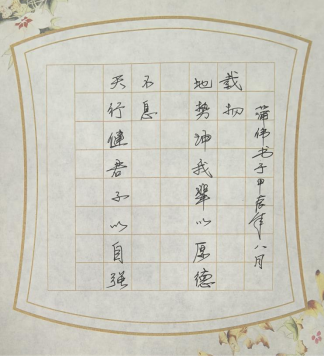 天行健君子以自强
不息
地势坤我辈以厚德
载物
蒲伟书于甲辰年八月